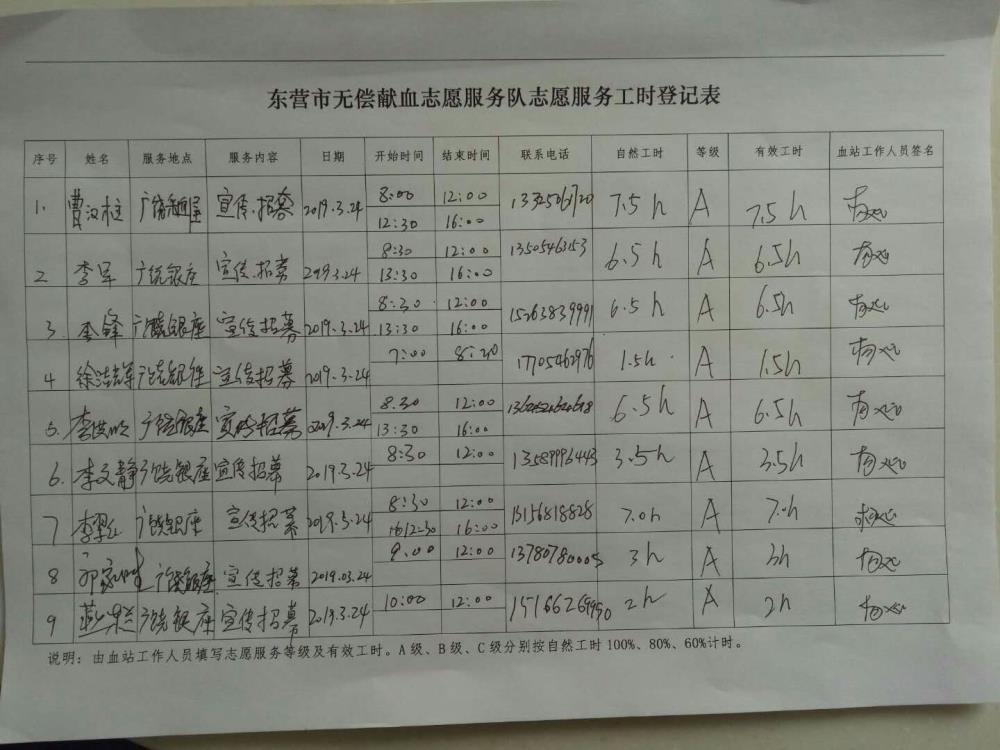 东营市无偿献血志愿服务队志愿服务工时登记表
序号 姓名 服务地点 服务内容 日期 开始时间 结束时间 联系电话 自然工时 等级 有效工时 血站工作人员签名
1. 曹汉柱 广饶 宣传.招募 2019.3.24 8:00 12:00 7.5h A 7.5h
12:30 16:00
2 李军 广饶银座 宣传.招募 2019.3.24 8:30 12:00 13505463153 6.5h A 6.5h
13:30 16:00
3 李锋 广饶银座 宣传招募 2019.3.24 8:30 12:00 15263839991 6.5h A 6.5h
13:30 16:00
4 广饶银座 宣传招募 2019.3.24 7:00 8:30 17705462976 1.5h A 1.5h
5. 广饶银座 宣传招募 2019.3.24 8:30 12:00 6.5h A 6.5h
13:30 16:00
6. 李文静 广饶银座 宣传招募 2019.3.24 8:30 12:00 13589996443 3.5h A 3.5h
7 李翠红 广饶银座 宣传招募 2019.3.24 8:30 12:00 13156818828 7.0h A 7.0h
12:30 16:00
8 广饶银座 宣传招募 2019.03.24 9:00 12:00 13780780005 3h A 3h
9 广饶银座 宣传招募 2019.3.24 10:00 12:00 2h A 2h
说明：由血站工作人员填写志愿服务等级及有效工时。A级、B级、C级分别按自然工时100%、80%、60%计时。